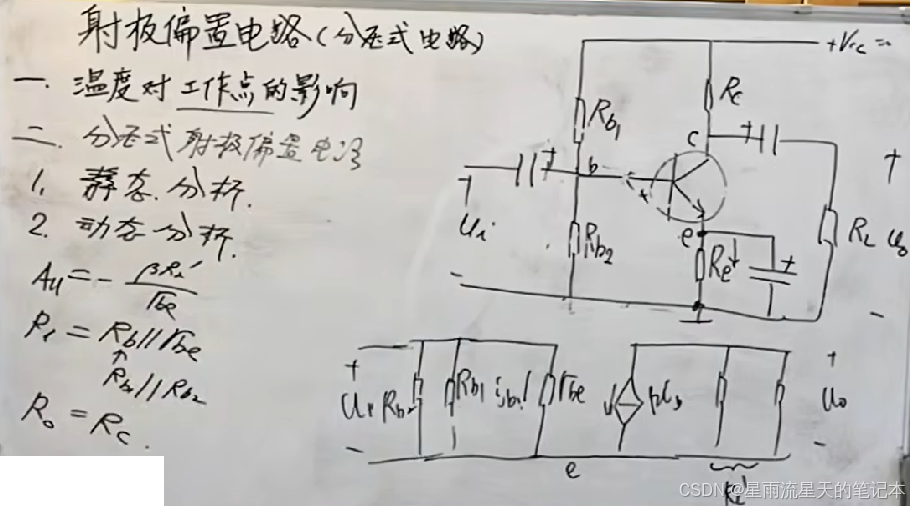 射极偏置电路(分压式电路)
一. 温度对工作点的影响
二. 分压式射极偏置电路
1. 静态分析.
2. 动态分析.
Au = - βRL' / rbe
Ri = Rb // rbe
↑
Rb1 // Rb2
Ro = Rc.
+Vcc =
Rb1
Rc
c
+
+
b
+
Ui
-
Rb2
e
Re
+
RL
+
Uo
-
+
Ui
-
Rb2
Rb1
ib
rbe
e
RL'
+
Uo
-
CSDN @星雨流星天的笔记本